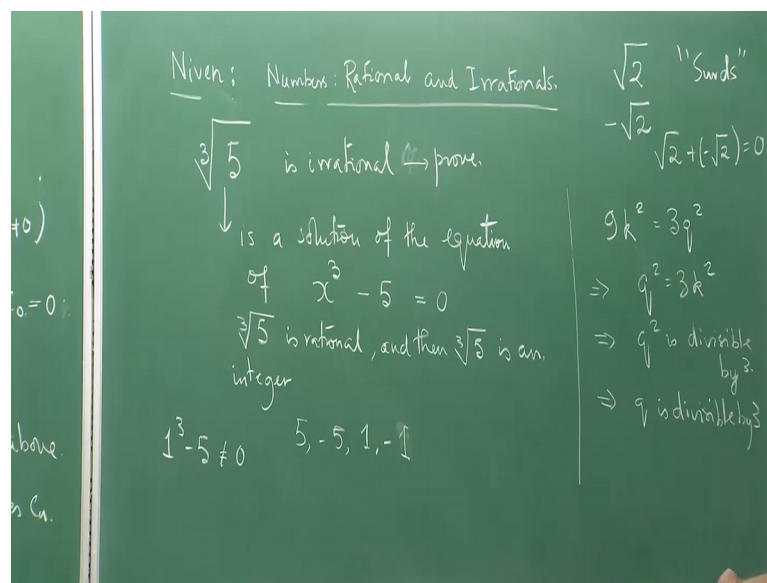 ≠0)
0 = 0
above.
Niven: Numbers: Rational and Irrationals.
∛5 is irrational → prove.
↓
is a solution of the equation
of x³ - 5 = 0
∛5 is rational, and then ∛5 is an
integer
1³-5 ≠ 0 5, -5, 1, -1
√2 "Surds"
-√2
√2 + (-√2) = 0
9k² = 3q²
⇒ q² = 3k²
⇒ q² is divisible
by 3.
⇒ q is divisible by 3